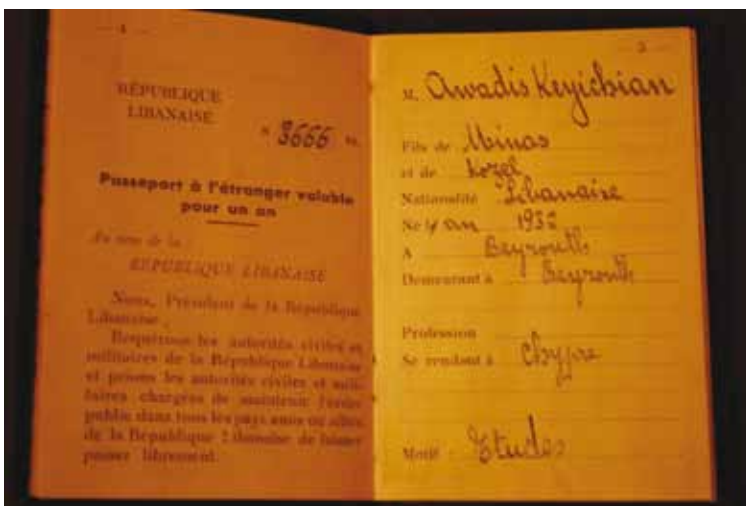 RÉPUBLIQUE
LIBANAISE
N 3666
Passeport à l'étranger valable
pour un an
Au nom de la :
RÉPUBLIQUE LIBANAISE
Nous, Président de la République
Libanaise,
Requérons les autorités civiles et
militaires de la République Libanaise
et prions les autorités civiles et mili-
taires chargées de maintenir l'ordre
public dans tous les pays amis ou alliés
de la République Libanaise de laisser
passer librement.
3
M. Awadis Keyichian
Fils de Minas
et de Kozel
Nationalité Libanaise
Né en 1932
A Beyrouth
Demeurant à Beyrouth
Profession
Se rendant à Chypre
Motif : Etudes